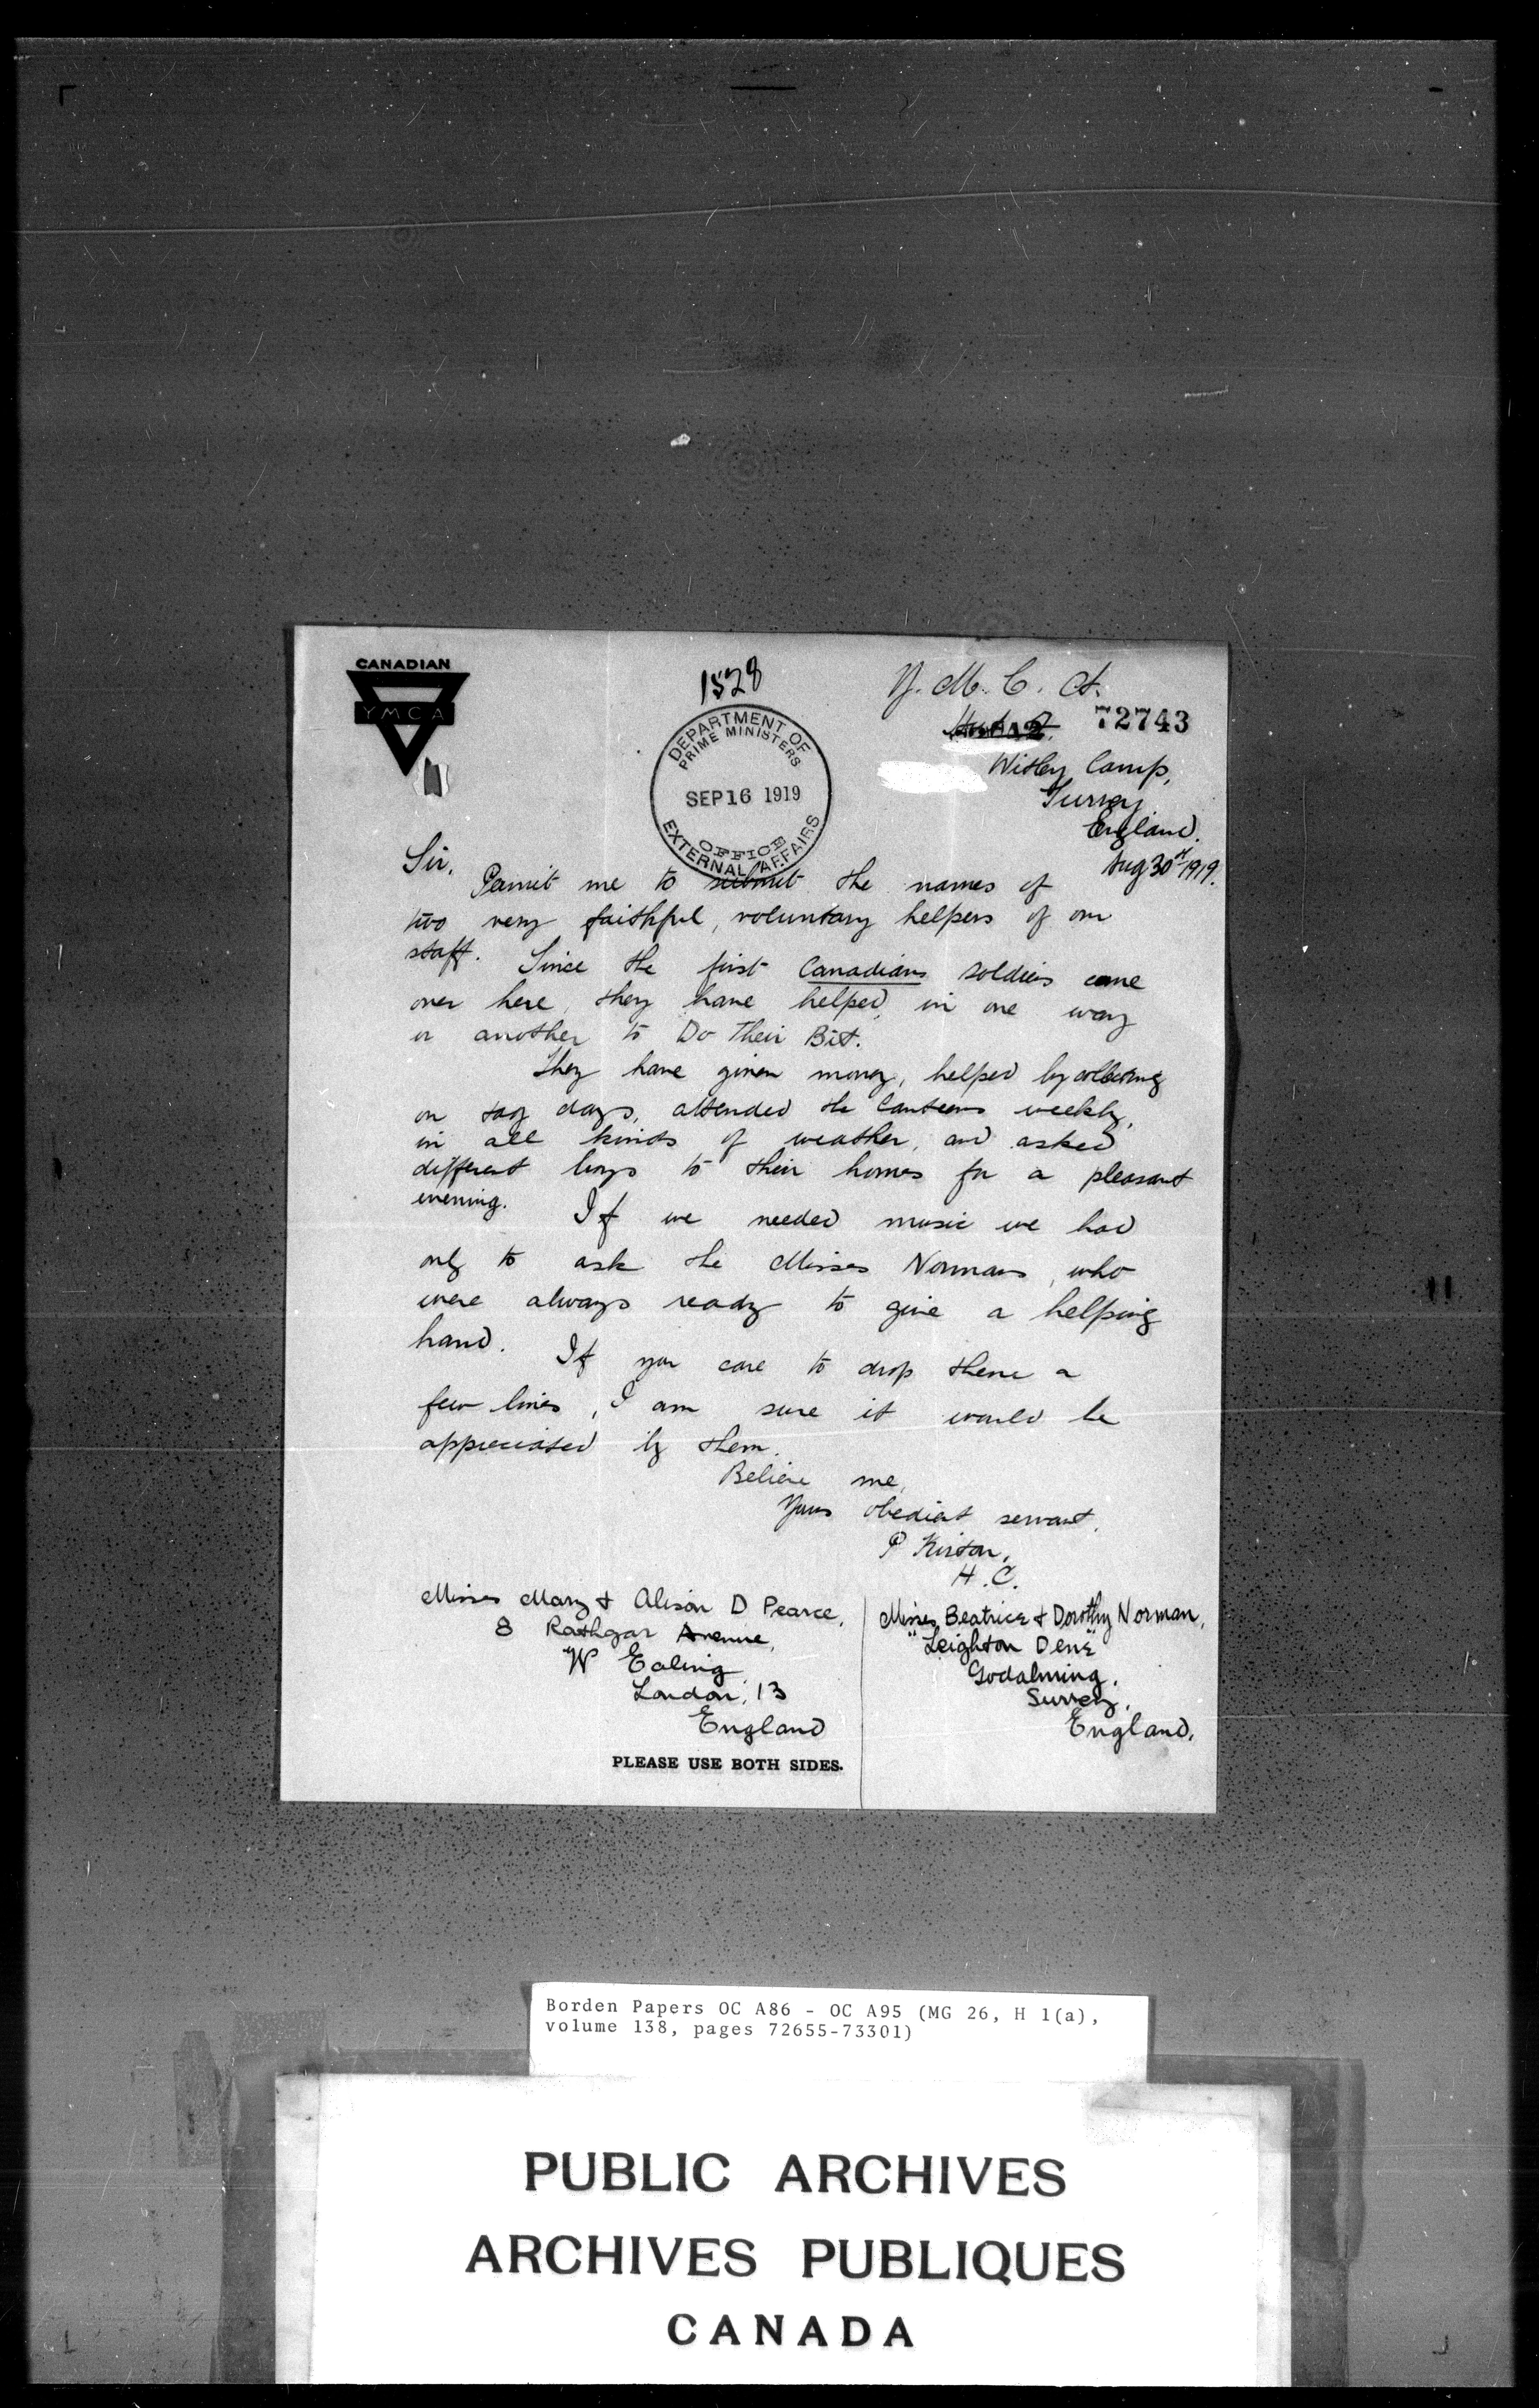 CANADIAN
YMCA
1528
DEPARTMENT OF
PRIME MINISTERS
SEP 16 1919
OFFICE
EXTERNAL AFFAIRS
Y. M. C. A.
72743
Witley Camp,
Surrey
England.
Aug 30st 1919.
Sir,
Permit me to submit the names of
two very faithful, voluntary helpers of our
staff. Since the first Canadians soldiers came
over here, they have helped, in one way
or another to Do Their Bit.
They have given money, helped by collecting
on tag days, attended the Canteens weekly,
in all kinds of weather, and asked
different boys to their homes for a pleasant
evening. If we needed music we had
only to ask the Misses Normans, who
were always ready to give a helping
hand. If you care to drop them a
few lines, I am sure it would be
appreciated by them.
Believe me,
Yours obedient servant,
P Kirton,
H.C.
Misses Mary & Alison D Pearce,
8 Rathgar Avenue,
W Ealing
London, 13
England
Misses Beatrice & Dorothy Norman,
"Leighton Dene"
Godalming,
Surrey,
England.
PLEASE USE BOTH SIDES.
Borden Papers OC A86 - OC A95 (MG 26, H 1(a),
volume 138, pages 72655-73301)
PUBLIC ARCHIVES
ARCHIVES PUBLIQUES
CANADA